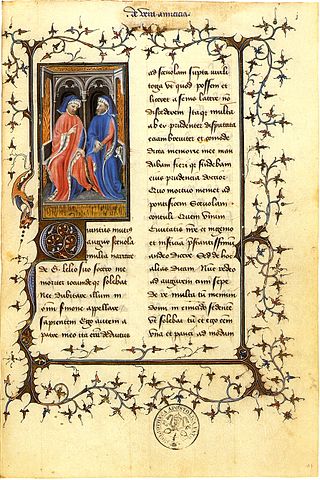 de vera amicitia
Quintus mutius
augur scevola
multa narrare
de G. lelio suo socero me
moriter iocunde qz solebat
nec dubitare illum in
omni sermone appellare
sapientem Ego autem a
patre meo ita eram deductus
ad scevolam supta virili
toga ut quod possem et
liceret a senis latere no
discederem Itaque multa
ab eo prudenter disputata
etiam breviter et comode
dicta memorie man
dabam fieri qz studebam
eius prudencia doctior
Quo mortuo memet ad
pontificem Scevolam
contuli Quem unum
Civitatis nre et ingenio
et iusticia prestantissimum
audeo dicere Sed de hoc
alias Nunc redeo
ad augurem Cum sepe
multa tum memini
domi in sedente
ut solebat cum et ego essem
una et pauci ad modum